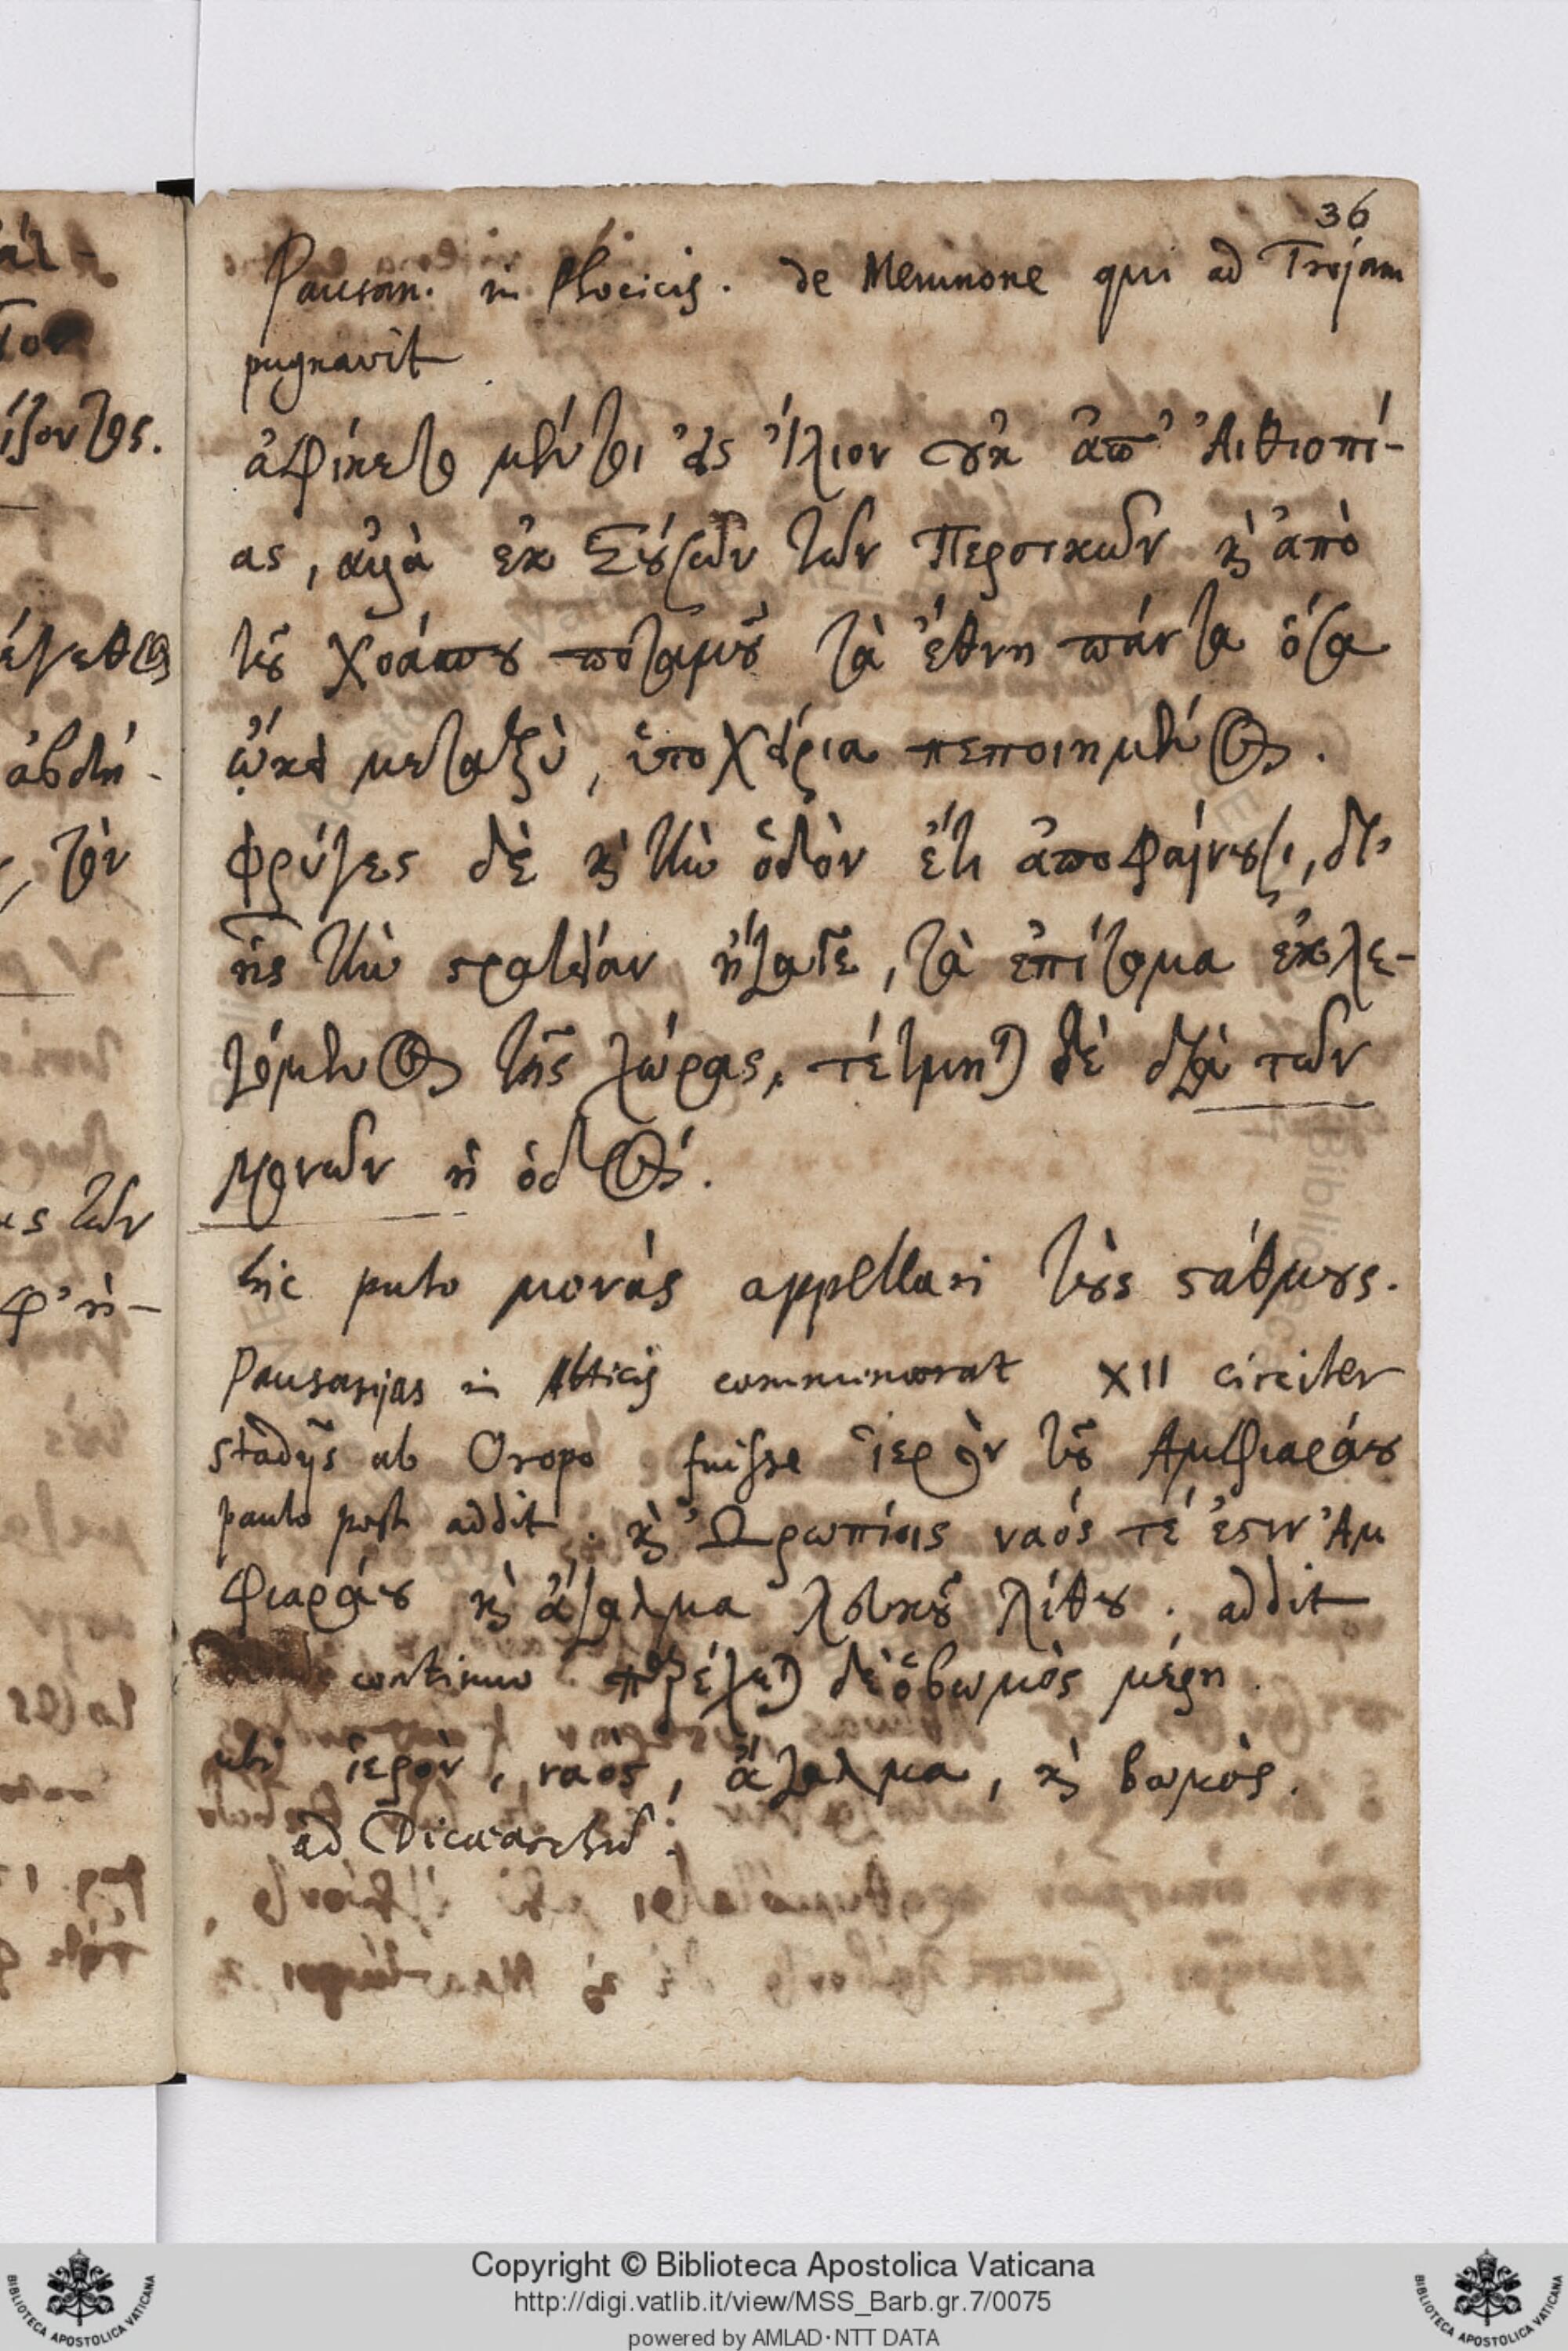 36
Pausan. in Phocicis. de Memnone qui ad Trojam
pugnavit
ἀφίκετο μέντοι ἐς Ἴλιον οὐκ ἀπ' Αἰθιοπί-
ας, ἀλλὰ ἐκ Σούσων τῶν Περσικῶν καὶ ἀπὸ
τοῦ Χοάσπου ποταμοῦ τὰ ἔθνη πάντα ὅσα
ᾤκει μεταξὺ, ὑποχείρια πεποιημένος.
φρύγες δὲ καὶ τὴν ὁδὸν ἔτι ἀποφαίνουσι, δι'
ἧς τὴν στρατείαν ἤγαγε, τὰ ἐπίτομα ἐκλε-
γόμενος τῆς χώρας, τέτμηται δὲ διὰ τῶν
μονῶν ἡ ὁδός.
hic puto μονάς appellari τοὺς στάθμους.
Pausanijas in Atticis commemorat XII circiter
stadijs ab Oropo fuisse ἱερὸν τοῦ Αμφιαράου
paulo post addit. καὶ Ὠρωπίοις ναός τέ ἐστιν Ἀμ
φιαράου καὶ ἄγαλμα λευκοῦ λίθου. addit
continuo παρέχεται δὲ ὁ βωμὸς μέρη.
ubi ἱερὸν, ναὸς, ἄγαλμα, καὶ βωμὸς.
ad Dicaearchum.
άβδη-
τὸν
τῶν
Copyright © Biblioteca Apostolica Vaticana
http://digi.vatlib.it/view/MSS_Barb.gr.7/0075
powered by AMLAD·NTT DATA
BIBLIOTECA APOSTOLICA VATICANA
BIBLIOTECA APOSTOLICA VATICANA